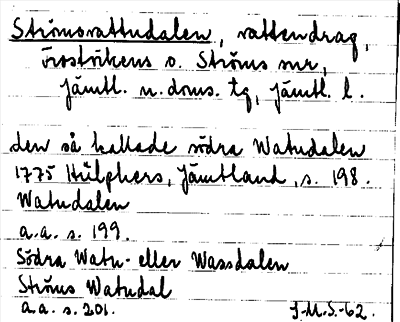 Strömsvattudalen, vattendrag,
Frostvikens o. Ströms snr,
Jämtl. n. doms. tg, Jämtl. l.
den så kallade södra Watudalen
1775 Hülphers, Jämtland, s. 198.
Watudalen
a.a. s. 199.
Södra Watu- eller Wassdalen
Ströms Watudal
a.a. s. 201.
J.M.S.-62.